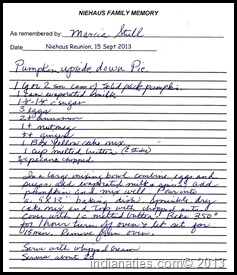 NIEHAUS FAMILY MEMORY
As remembered by: Marcia Stull
Date Niehaus Reunion, 15 Sept 2013
Pumpkin upside down Pie.
1 Lg or 2 sm cans of solid pack pumpkin.
1 can evaporated milk
1 1/4 - 1/2 c sugar
3 eggs
2 t cinnamon
1 t nutmeg
ginger
1 Box yellow cake mix.
1 cup melted butter, (2 sticks)
pecans chopped
In a large mixing bowl combine eggs and
sugar and evaporated milk & spices add
pumpkin and mix well Pour into
a 9x13" baking dish. Sprinkle dry
cake mix and top with chopped nuts &
cover with 1c melted butter. Bake 350°
for 1 hour turn off oven & let set for
15 min. Remove from oven.
Serve with whipped cream
Serves about 20
indianaties.com © 2013